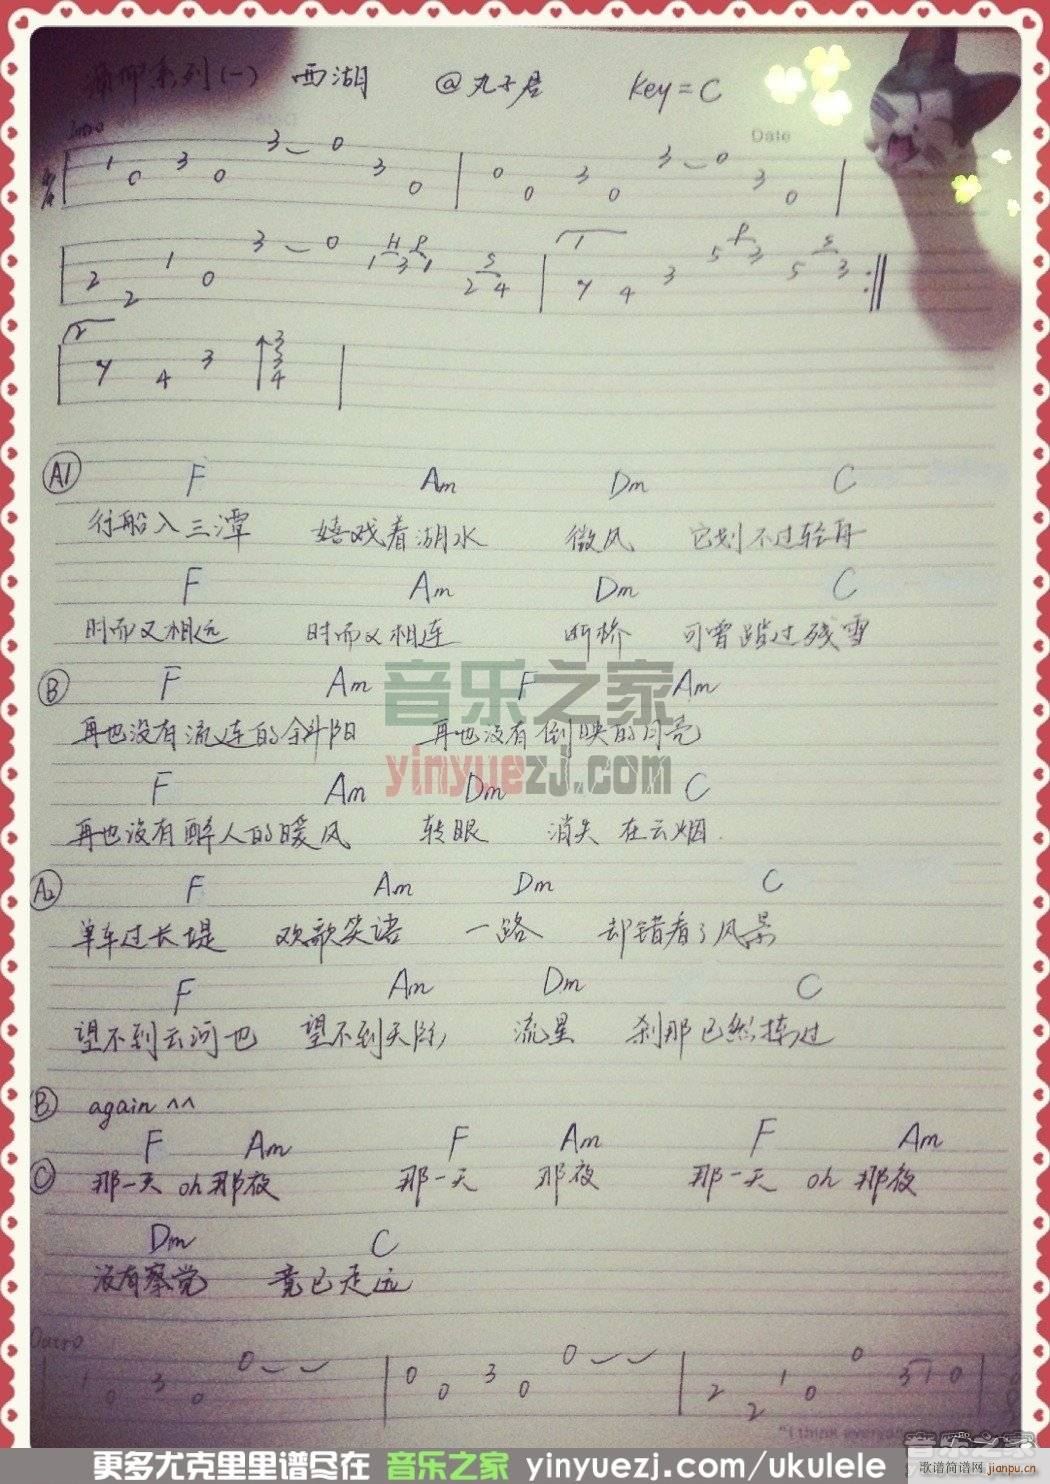 系列(一) 西湖 @丸子君 Key=C
Intro Date
4/4 1 0 3 0 3 0 3 0 0 0 3 0 3 0 3 0
H P S 1 P S
2 2 1 0 3 0 1 3 1 2 4 4 3 5 3 5 3
2
4 3 3 3 4
A1 F Am Dm C
行船入三潭 嬉戏着湖水 微风 它划不过轻舟
F Am Dm C
时而又相远 时而又相连 断桥 可曾踏过残雪
B F Am F Am
再也没有流连的斜阳 再也没有倒映的月亮
F Am Dm C
再也没有醉人的暖风 转眼 消失在云烟.
A2 F Am Dm C
单车过长堤 欢歌笑语 一路 却错看了风景
F Am Dm C
望不到云河也 望不到天际 流星 刹那已然掠过
B again ^^
F Am F Am F Am
C 那一天 oh 那夜 那一天 那夜 那一天 oh 那夜
Dm C
没有察觉 竟已走远
Outro
1 0 3 0 0 0 0 3 0 0 2 2 1 0 0 3 1 0
"I think every
音乐之家
yinyuezj.com
音乐之家
歌谱简谱网
jianpu.cn
更多尤克里里谱尽在 音乐之家 yinyuezj.com/ukulele